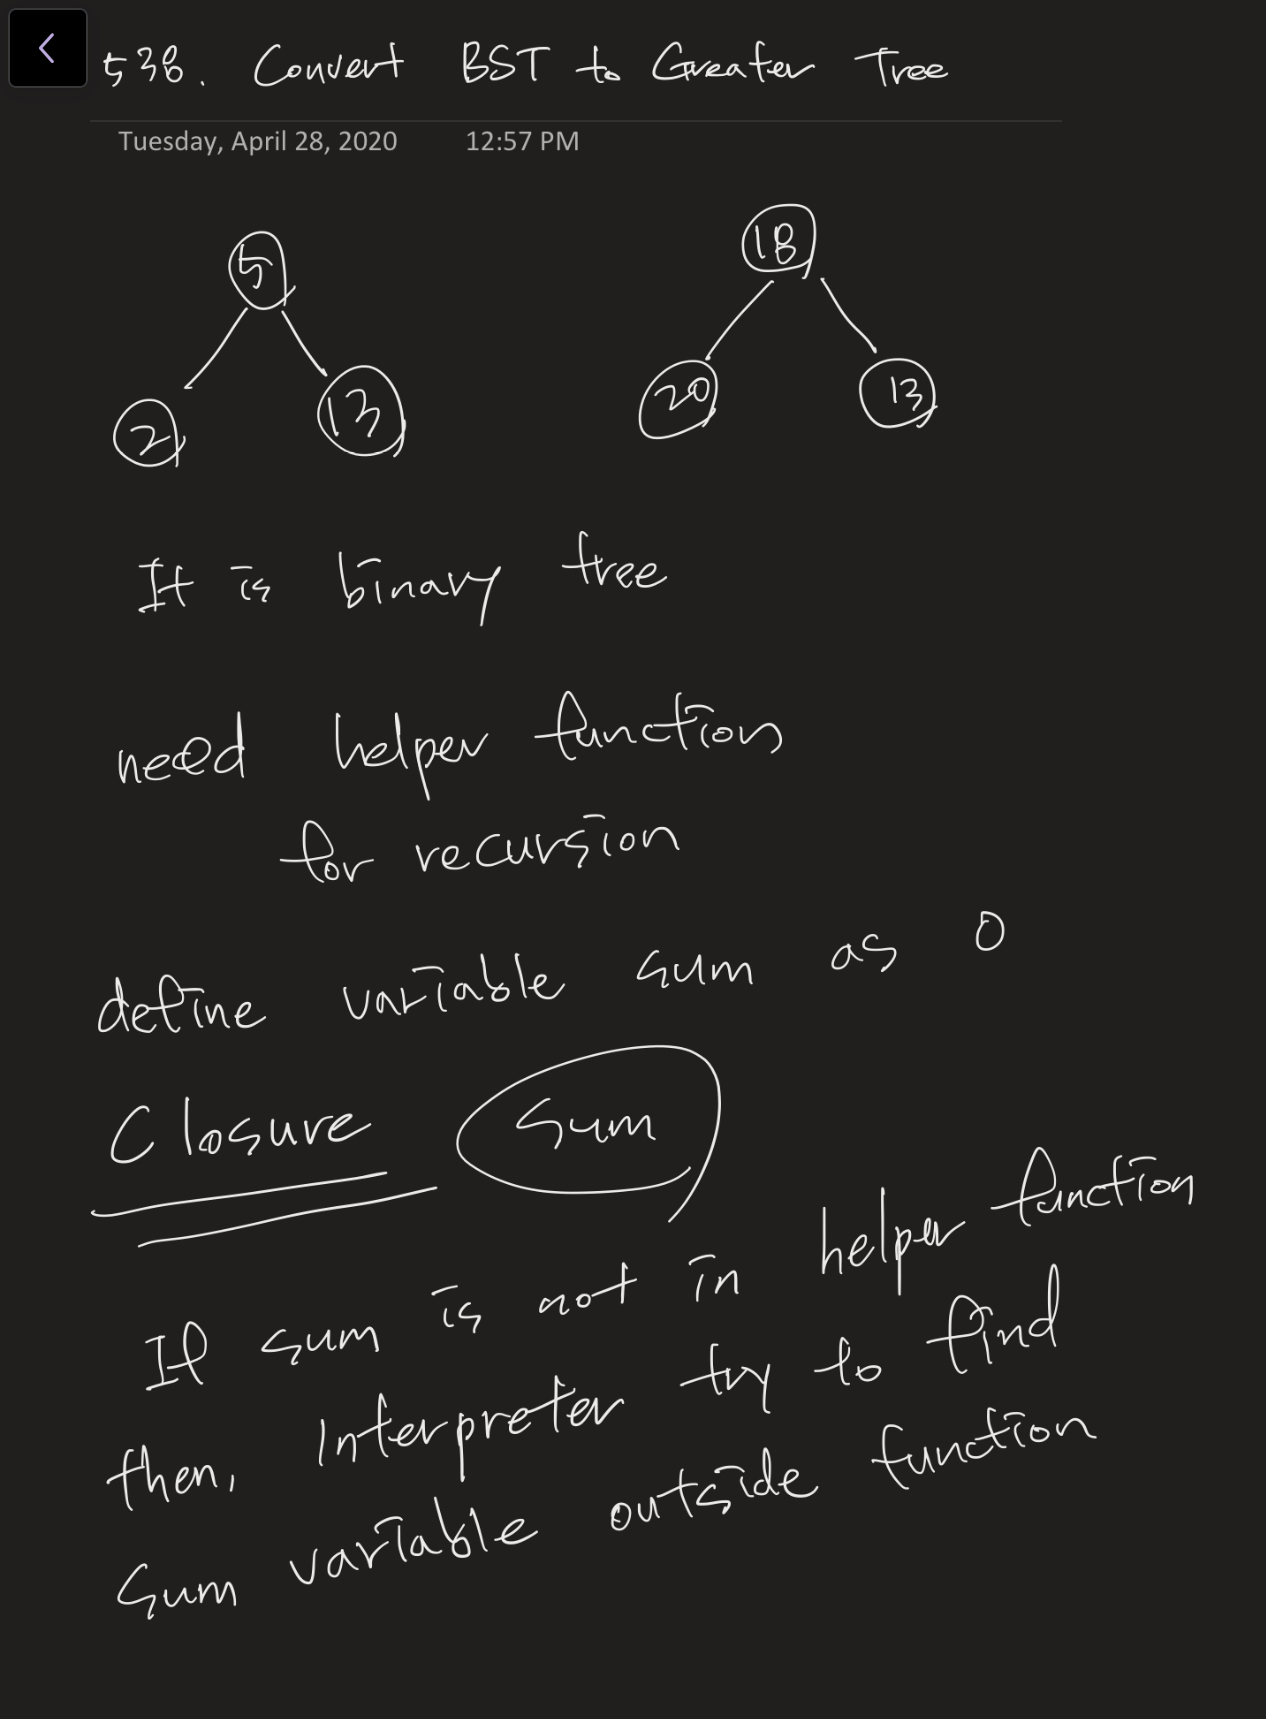 538. Convert BST to Greater Tree
Tuesday, April 28, 2020 12:57 PM
5
2 13
18
20 13
It is binary tree
need helper function
for recursion
define variable sum as 0
Closure sum
If sum is not in helper function
then, Interpreter try to find
sum variable outside function